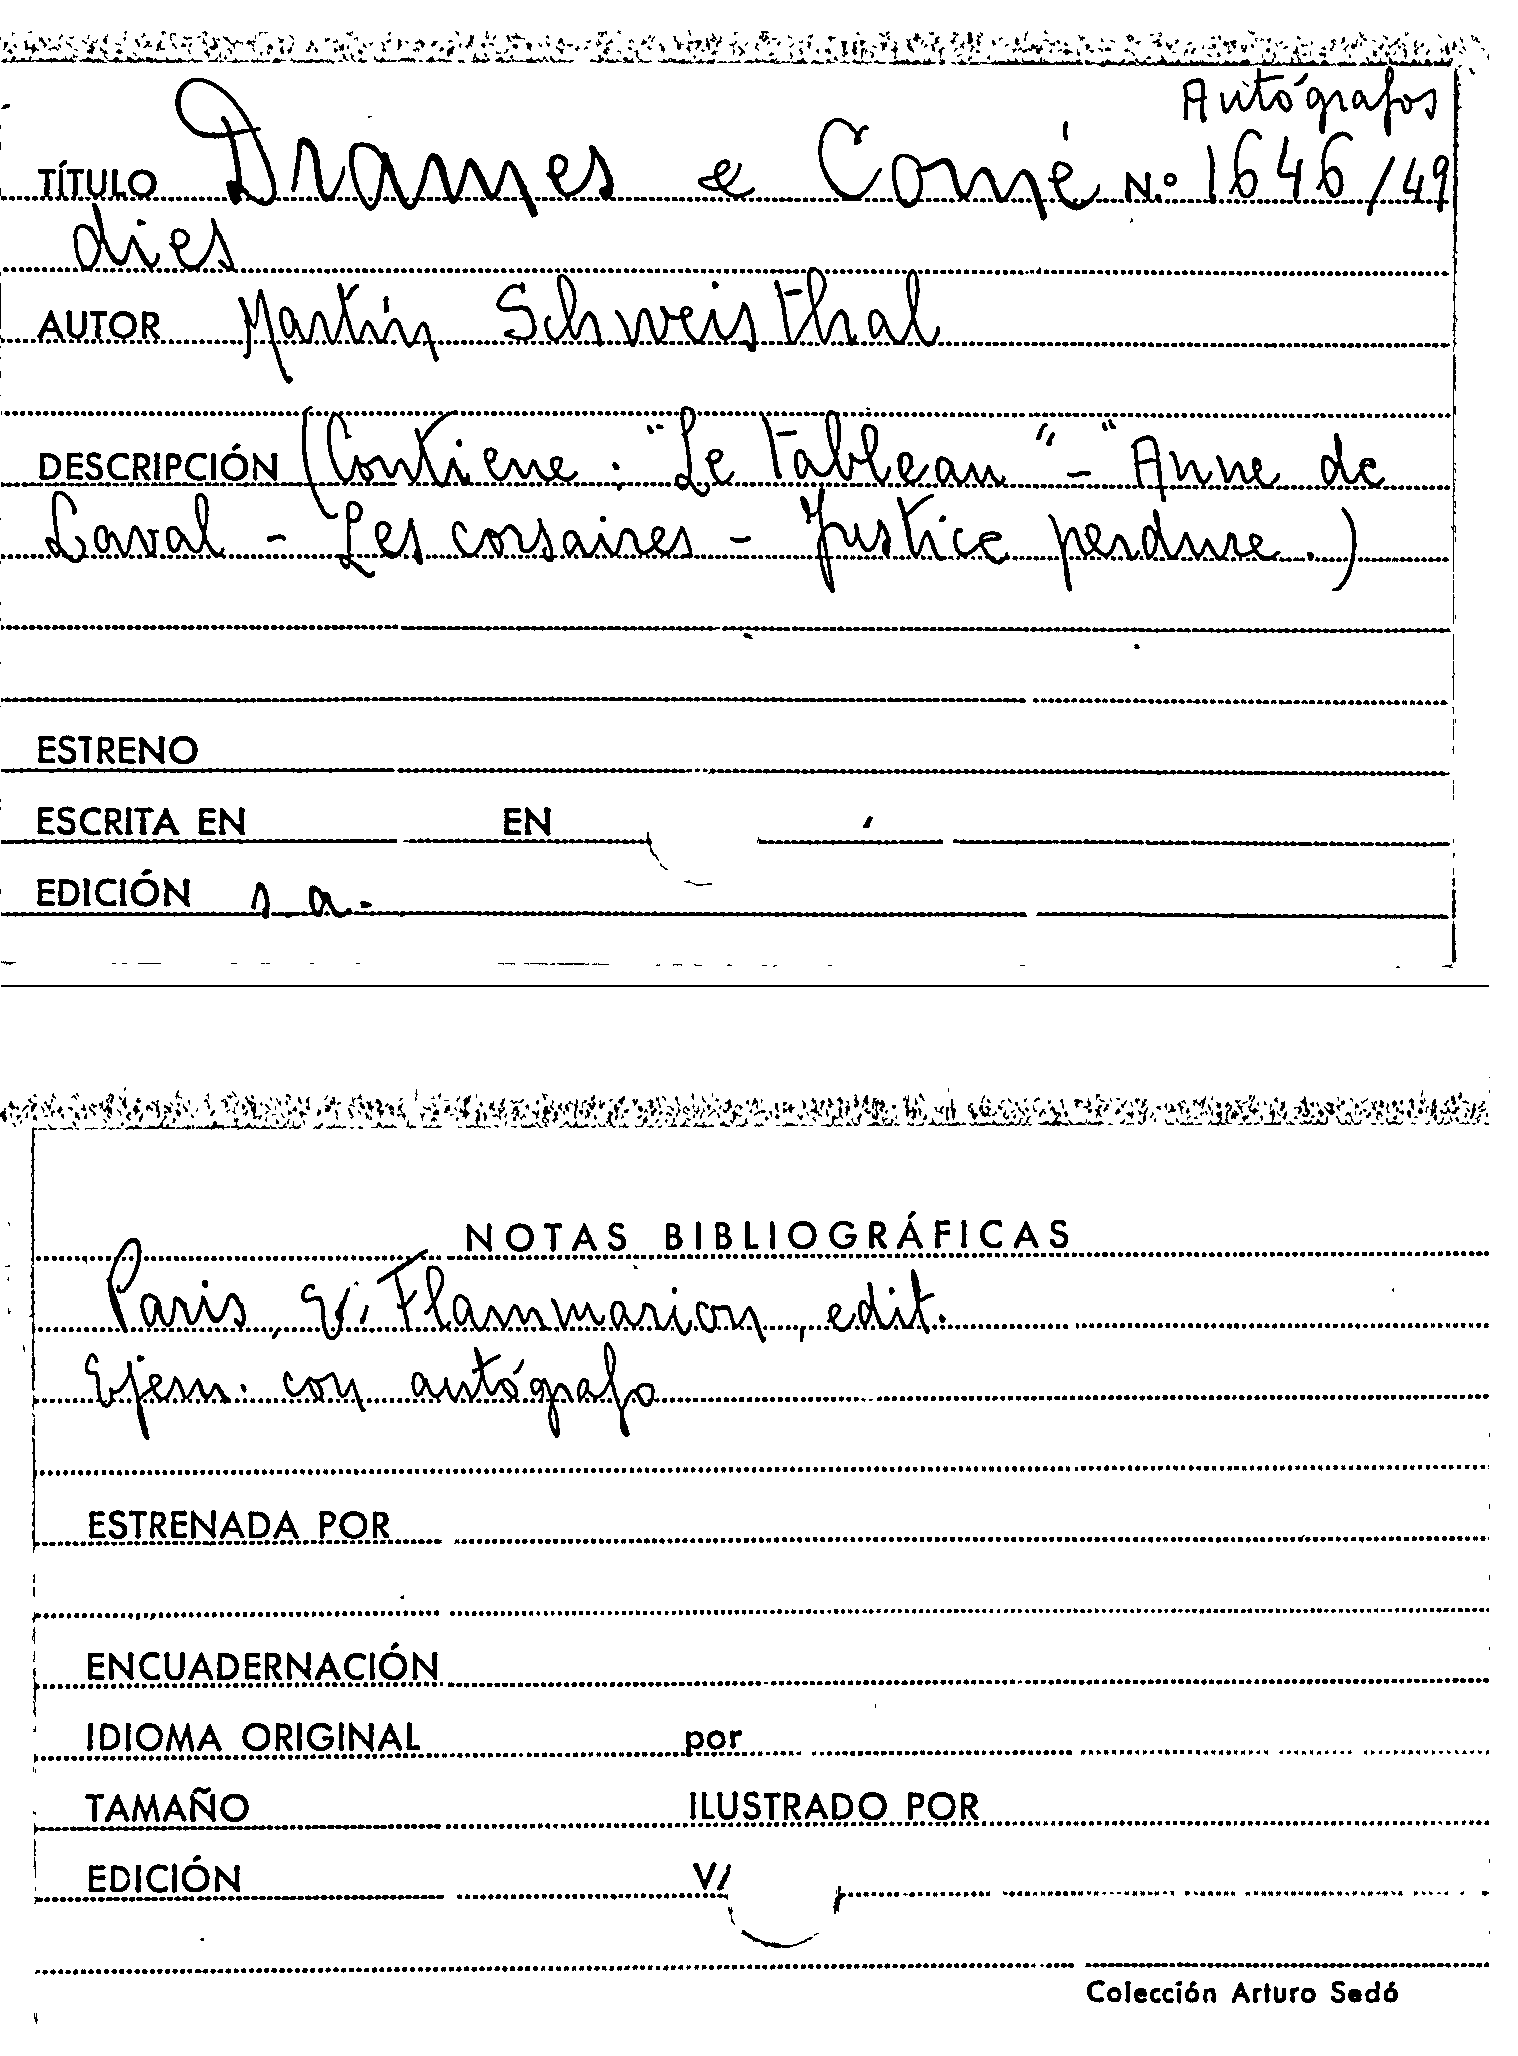 Autógrafos
TÍTULO Drames & Comé N.º 1646/49
dies
AUTOR Martín Schweisthal
DESCRIPCIÓN (Contiene: "Le Tableau" - "Anne de
Laval - Les corsaires - Justice perdure.)
ESTRENO
ESCRITA EN EN
EDICIÓN s.a.
NOTAS BIBLIOGRÁFICAS
Paris, E. Flammarion, edit.
Ejem. con autógrafo
ESTRENADA POR
ENCUADERNACIÓN
IDIOMA ORIGINAL por
TAMAÑO ILUSTRADO POR
EDICIÓN V/
Colección Arturo Sedó